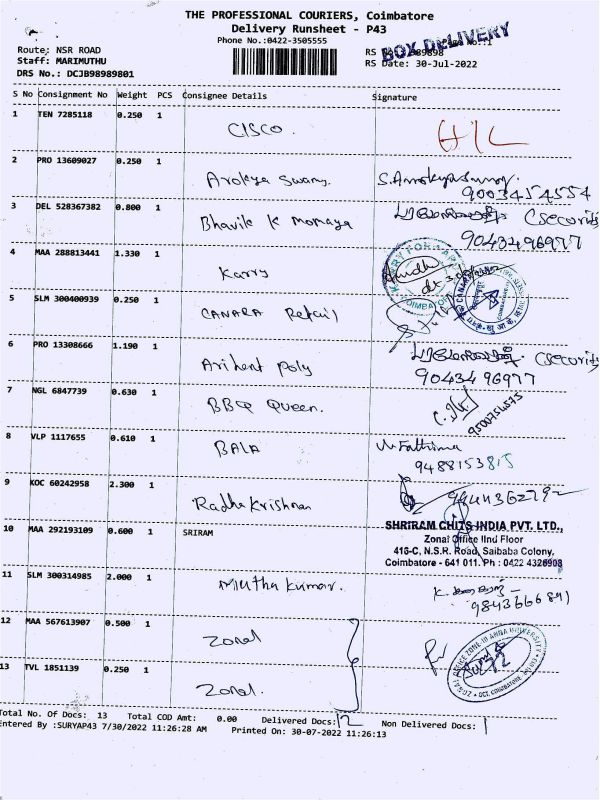 THE PROFESSIONAL COURIERS, Coimbatore
Delivery Runsheet - P43
Phone No.:0422-3505555
BOX DELIVERY
Route: NSR ROAD
Staff: MARIMUTHU
RS Date: 30-Jul-2022
DRS No.: DCJB98989801
S No Consignment No Weight PCS Consignee Details Signature
1 TEN 7285118 0.250 1 CISCO.
2 PRO 13609027 0.250 1 Arokya Swamy.
9003454554
3 DEL 528367382 0.800 1 Bhavik K Momaya (Security
9043496977
4 MAA 288813441 1.330 1 Karry
5 SLM 300400939 0.250 1 CANARA Retail
6 PRO 13308666 1.190 1 Arihent Poly (Security
9043496977
7 NGL 6847739 0.630 1 BBQ Queen.
9500754575
8 VLP 1117655 0.610 1 BALA Fathima
9488153815
9 KOC 60242958 2.300 1 Radha Krishnan
10 MAA 292193109 0.600 1 SRIRAM
SHRIRAM CHITS INDIA PVT. LTD.,
Zonal Office IInd Floor
416-C, N.S.R. Road, Saibaba Colony,
Coimbatore - 641 011. Ph : 0422 4326908
11 SLM 300314985 2.000 1 Muthu Kumar.
9843666891
12 MAA 567613907 0.500 1 Zonal
13 TVL 1851139 0.250 1 Zonal.
Total No. Of Docs: 13 Total COD Amt: 0.00 Delivered Docs: 12 Non Delivered Docs: 1
Entered By :SURYAP43 7/30/2022 11:26:28 AM Printed On: 30-07-2022 11:26:13